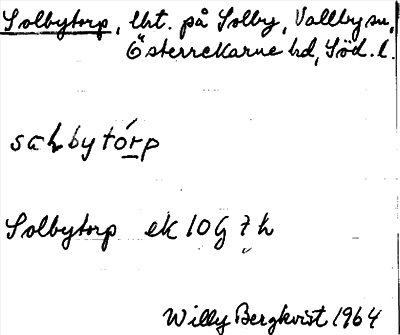 Solbytorp, lht. på Solby, Vallby sn,
Österrekarne hd, Söd. l.
Solbytorp ek 10 G 7 h
Willy Bergkvist 1964